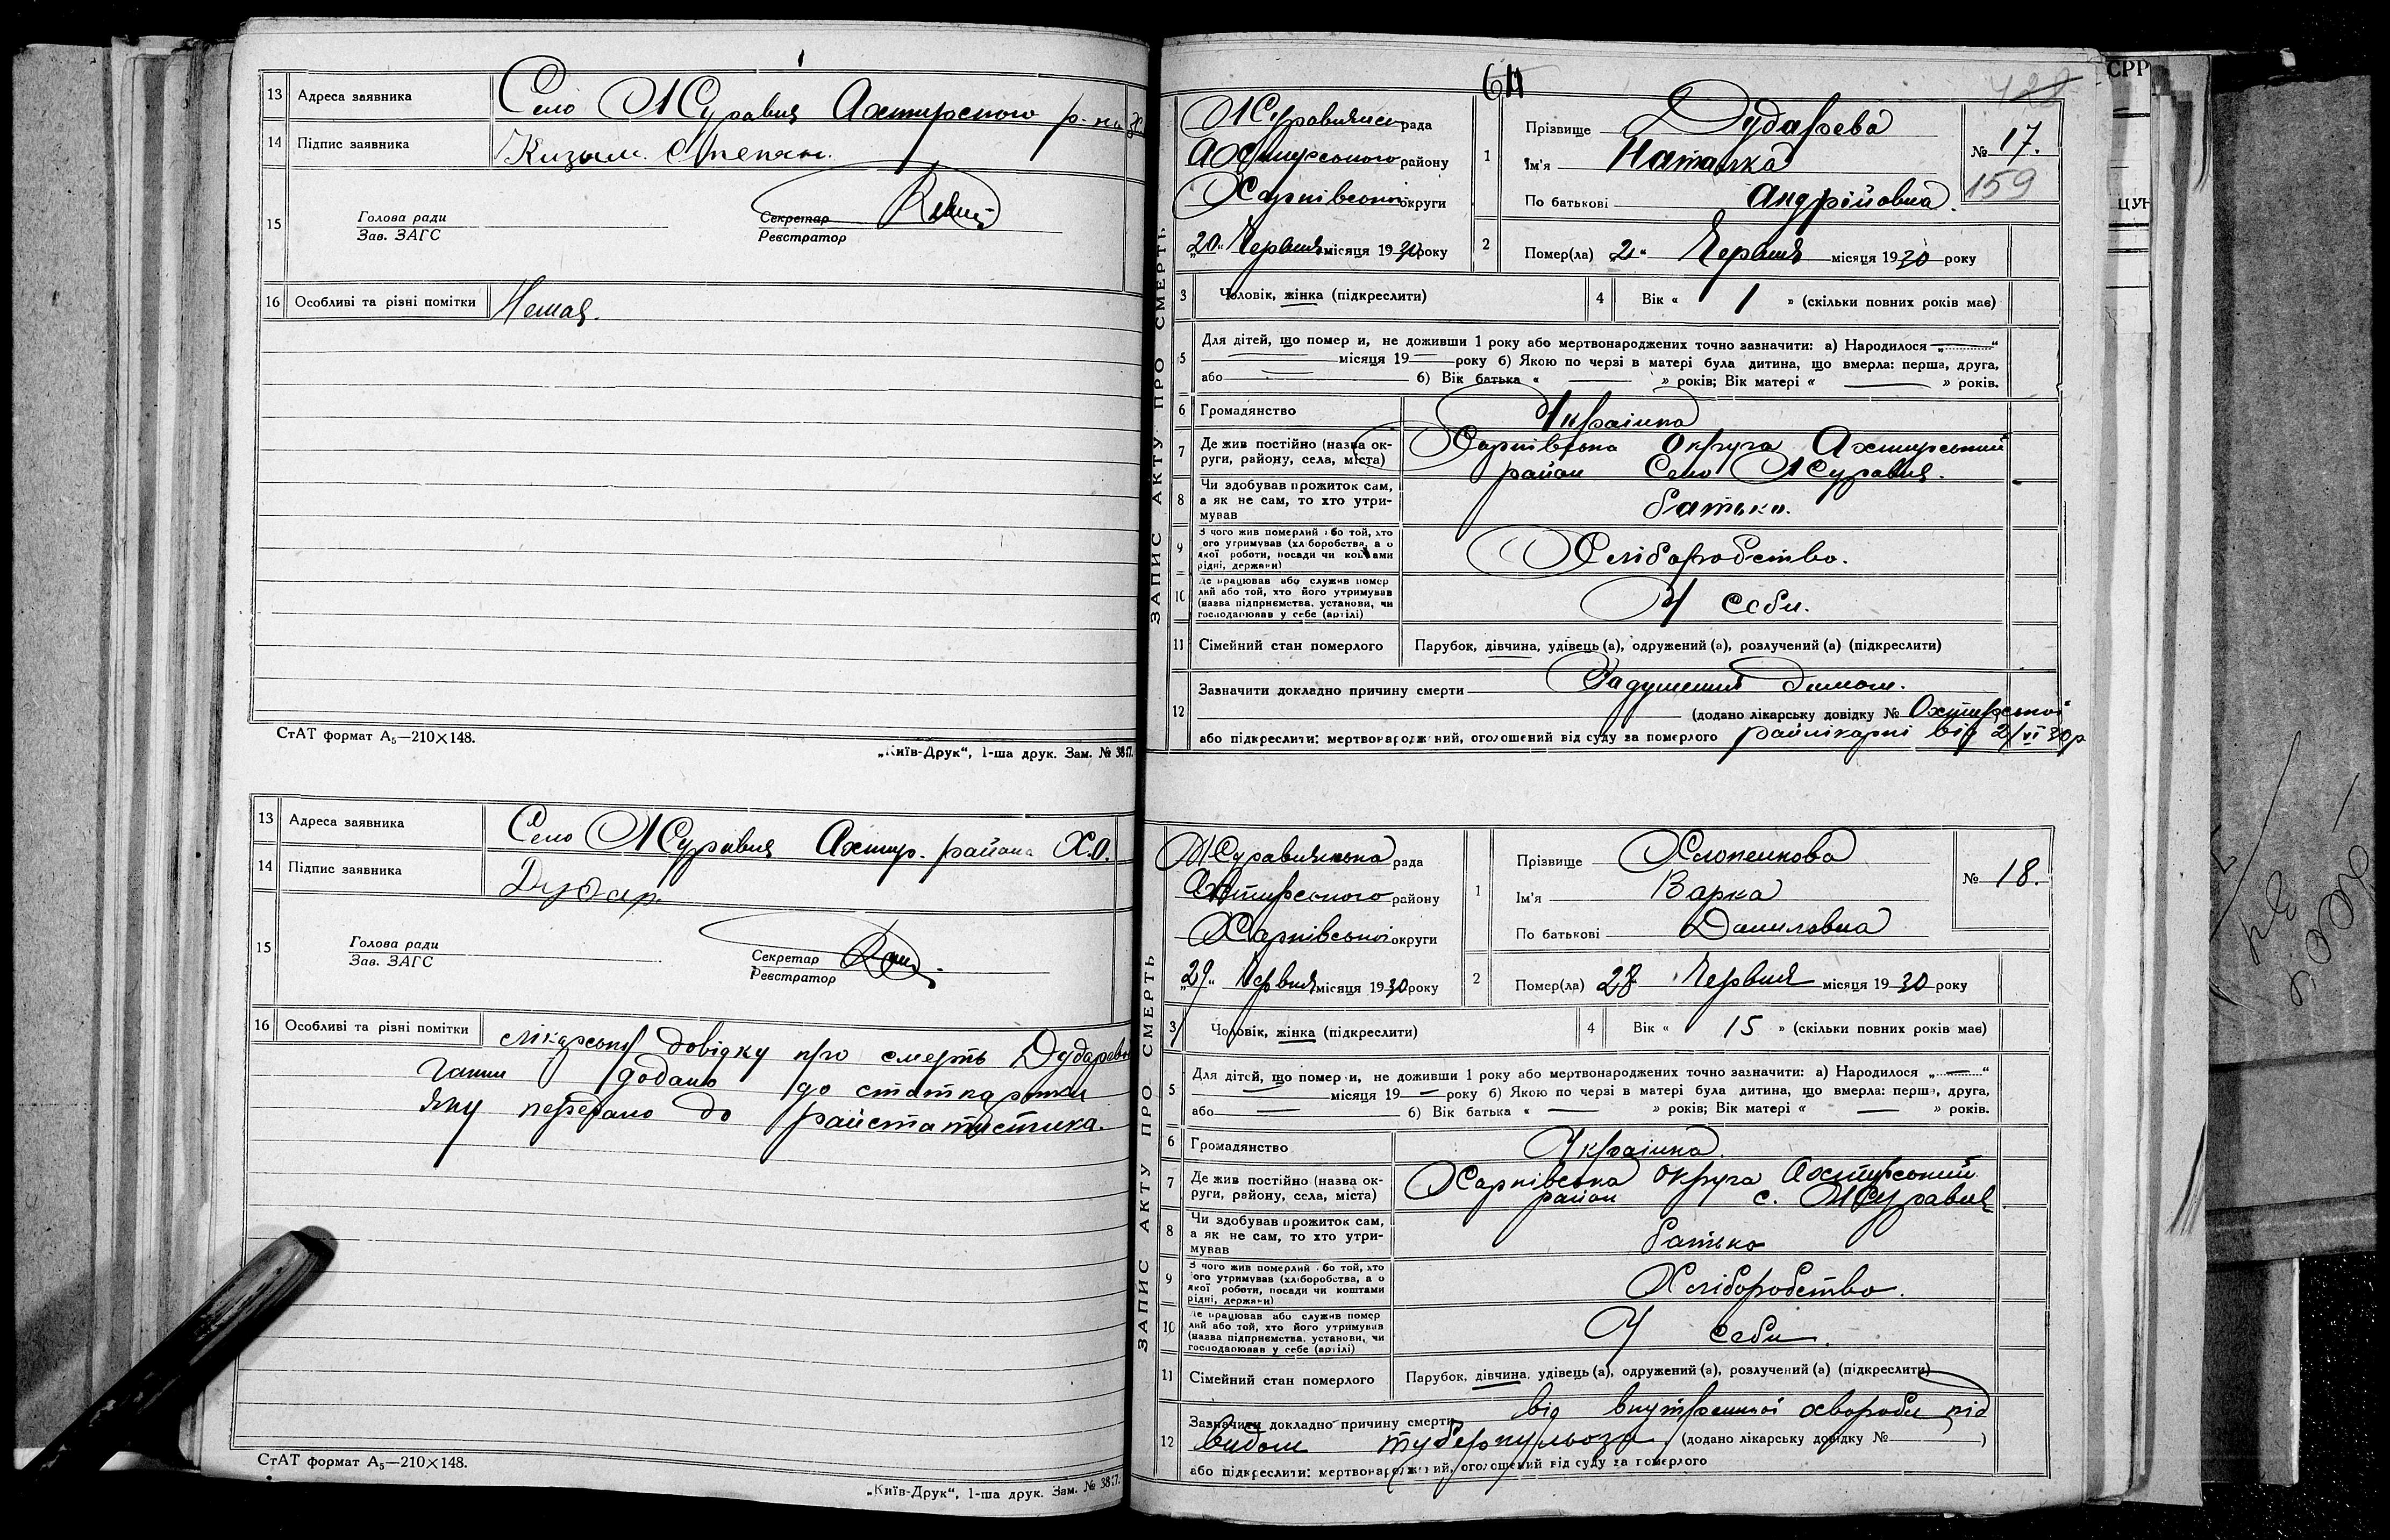 13 Адреса заявника Село Журавня Ахтирського р-на
14 Підпис заявника Степан
15 Голова ради
Зав. ЗАГС
Секретар
Реєстратор
16 Особливі та різні помітки Немає.
СтАТ формат А₅—210×148.
„Київ-Друк“, 1-ша друк. Зам. № 3817.
13 Адреса заявника Село Журавня Ахтир. района Х.О.
14 Підпис заявника Дудар.
15 Голова ради
Зав. ЗАГС
Секретар
Реєстратор
16 Особливі та різні помітки лікарську довідку про смерть Дударєво
Ганни додано до статкартки
яку передано до райстатистика.
СтАТ формат А₅—210×148.
„Київ-Друк“, 1-ша друк. Зам. № 3817.
СРР
428
ЗАПИС АКТУ ПРО СМЕРТЬ
Журавнянська рада
Ахтирського району
Харківської округи
„20“ Червня місяця 1930 року
1 Прізвище Дударєва
Ім'я Наталка
По батькові Андрійовна.
№ 17.
159
2 Помер(ла) 2 „ Червня місяця 1930 року
3 Чоловік, жінка (підкреслити)
4 Вік « 1 » (скільки повних років має)
5 Для дітей, що помер и, не доживши 1 року або мертвонароджених точно зазначити: а) Народилося „ — “
— місяця 19 — року б) Якою по черзі в матері була дитина, що вмерла: перша, друга,
або — б) Вік батька « — » років; Вік матері « — » років.
6 Громадянство Українка
7 Де жив постійно (назва округи, району, села, міста) Харківська Округа Ахтирський
район Село Журавня.
8 Чи здобував прожиток сам,
а як не сам, то хто утри-
мував батько.
9 З чого жив померлий або той, хто
його утримував (хліборобства, а о
якої роботи, посади чи коштами
рідні, держави) Хліборобство.
10 Де працював або служив помер
лий або той, хто його утримував
(назва підприємства, установи, чи
господарював у себе (артілі) У себи.
11 Сімейний стан померлого Парубок, дівчина, удівець (а), одружений (а), розлучений (а) (підкреслити)
12 Зазначити докладно причину смерти Задушення димом.
(додано лікарську довідку № Охтирської
або підкреслити: мертвонароджений, оголошений від суду за померлого райлікарні від 2/VI 30р
ЗАПИС АКТУ ПРО СМЕРТЬ
Журавнянська рада
Ахтирського району
Харківської округи
„29“ Червня місяця 1930 року
1 Прізвище Хлопенкова
Ім'я Варка
По батькові Даниловна
№ 18.
2 Помер(ла) 28 Червня місяця 1930 року
3 Чоловік, жінка (підкреслити)
4 Вік « 15 » (скільки повних років має)
5 Для дітей, що помер и, не доживши 1 року або мертвонароджених точно зазначити: а) Народилося „ — “
— місяця 19 — року б) Якою по черзі в матері була дитина, що вмерла: перша, друга,
або — б) Вік батька « — » років; Вік матері « — » років.
6 Громадянство Українка.
7 Де жив постійно (назва округи, району, села, міста) Харківська округа Ахтирський
район с. Журавня.
8 Чи здобував прожиток сам,
а як не сам, то хто утри-
мував батько
9 З чого жив померлий або той, хто
його утримував (хліборобства, а о
якої роботи, посади чи коштами
рідні, держави) Хліборобство.
10 Де працював або служив помер
лий або той, хто його утримував
(назва підприємства, установи, чи
господарював у себе (артілі) У себи.
11 Сімейний стан померлого Парубок, дівчина, удівець (а), одружений (а), розлучений (а) (підкреслити)
12 Зазначити докладно причину смерти від внутренньої хвороби під
видом туберкульоза (додано лікарську довідку № — )
або підкреслити: мертвонароджений, оголошений від суду за померлого